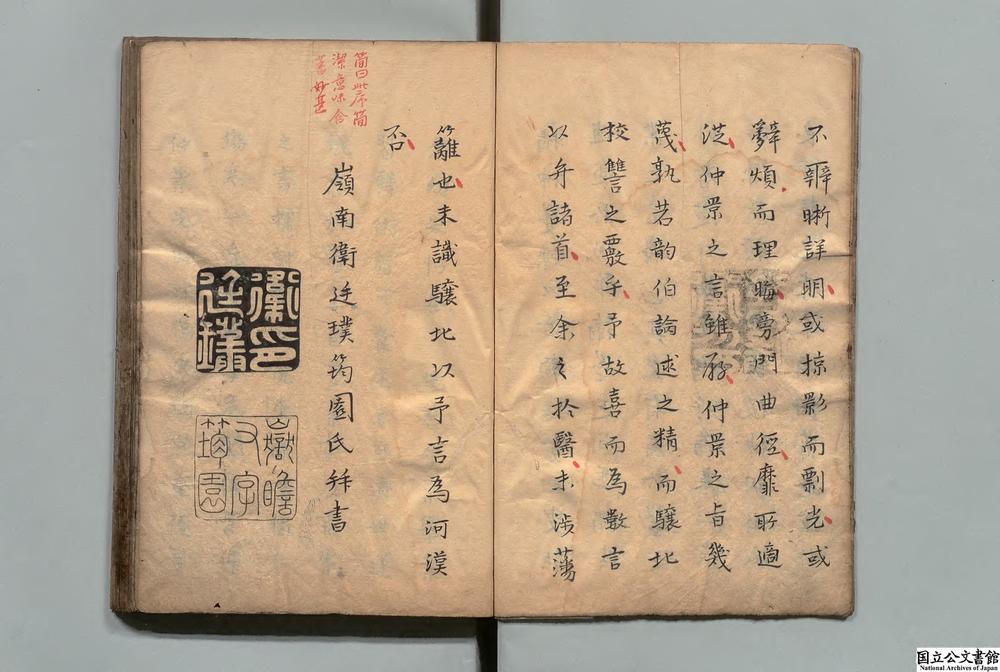 不辧晰詳明或掠影而剽光或
辭煩而理晦旁門曲徑靡所適
從仲景之言雖存仲景之旨幾
蔑孰若韵伯論述之精而驤北
校讐之覈乎予故喜而為數言
以弁諸首至余之於醫未涉藩
籬也未識驤北以予言為河漢
否
嶺南衛廷璞筠園氏拜書
簡曰此序簡
潔意味含
蓄妙甚
衛印廷璞
又字筠園
国立公文書館
National Archives of Japan